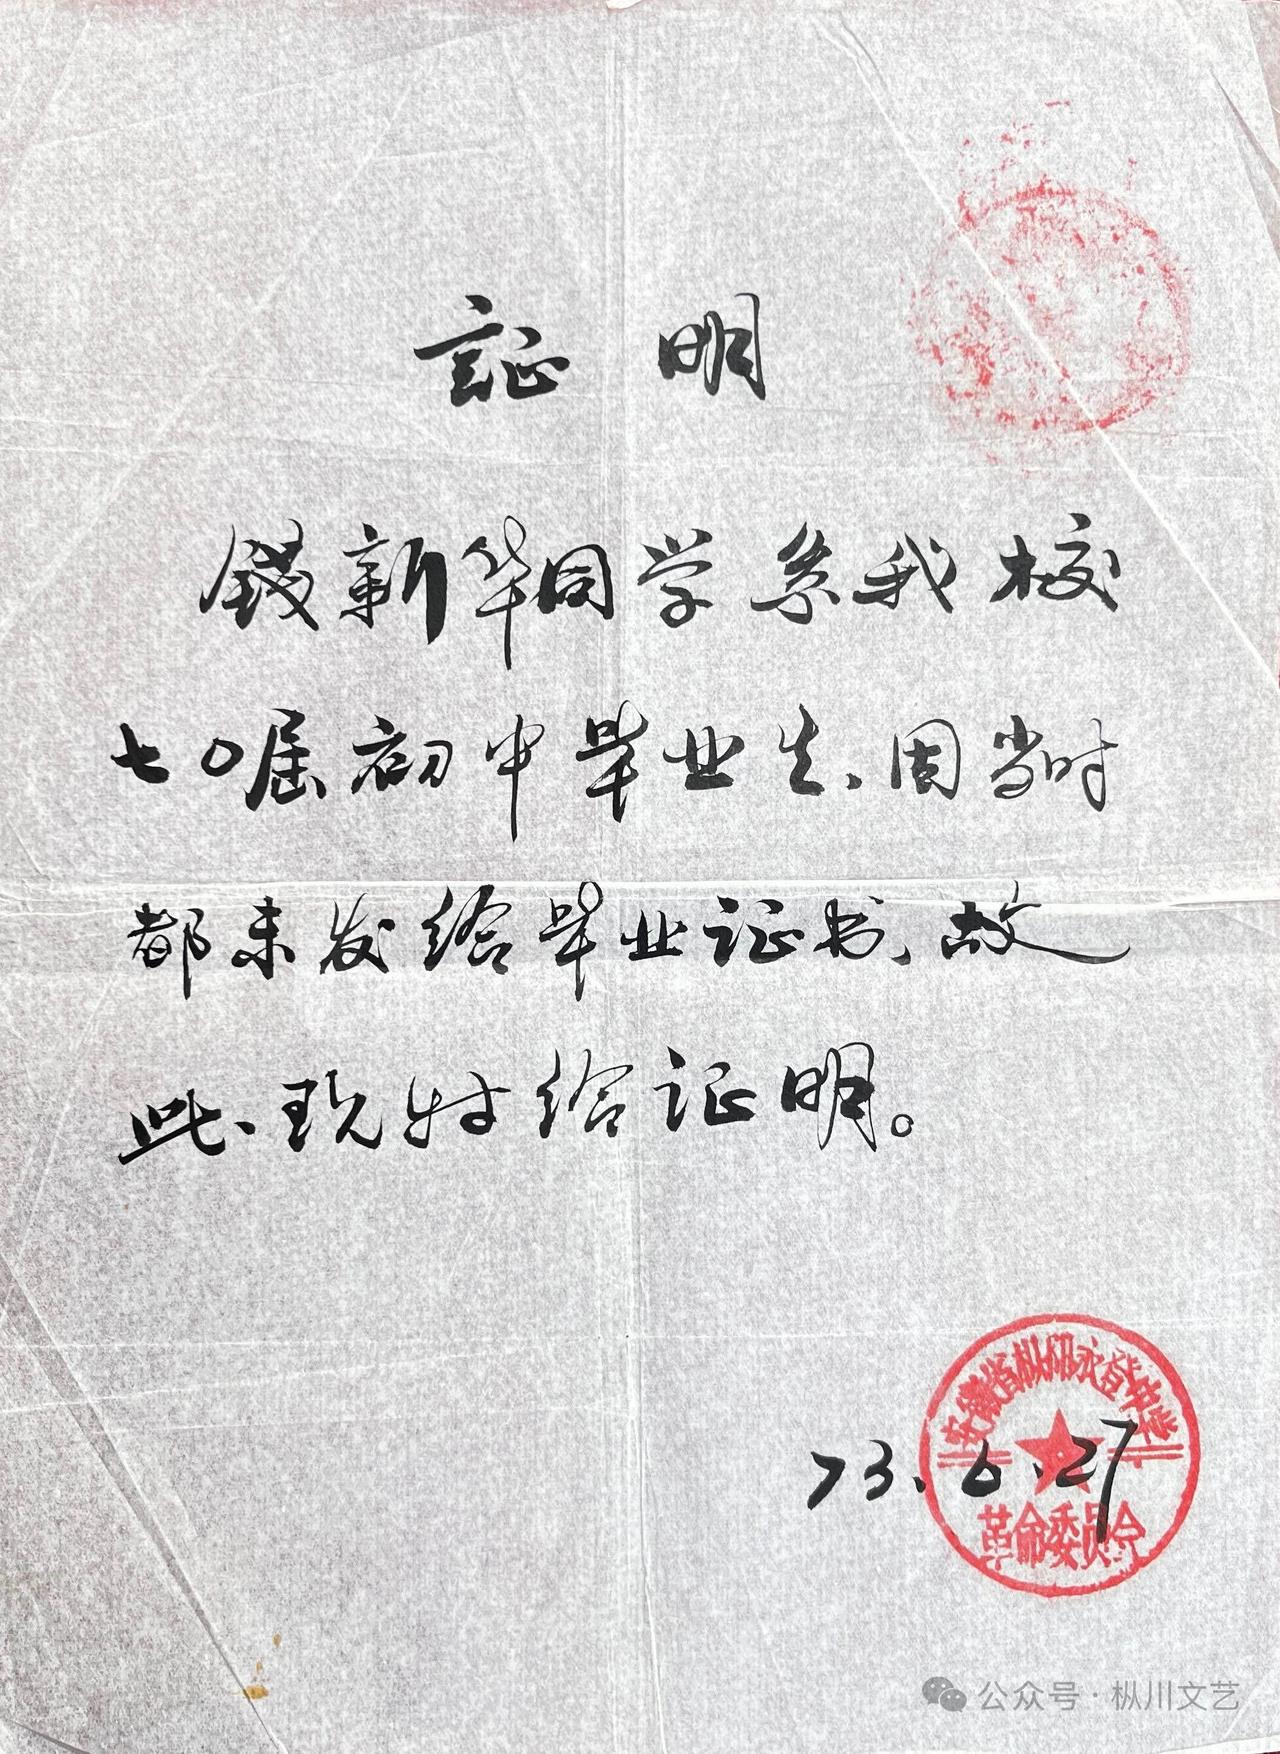 证 明
钱新华同学系我校
七〇届初中毕业生、因当时
都未发给毕业证书、故
此、现特给证明。
安徽省枞阳永登中学
73.6.27
革命委员会
公众号·枞川文艺